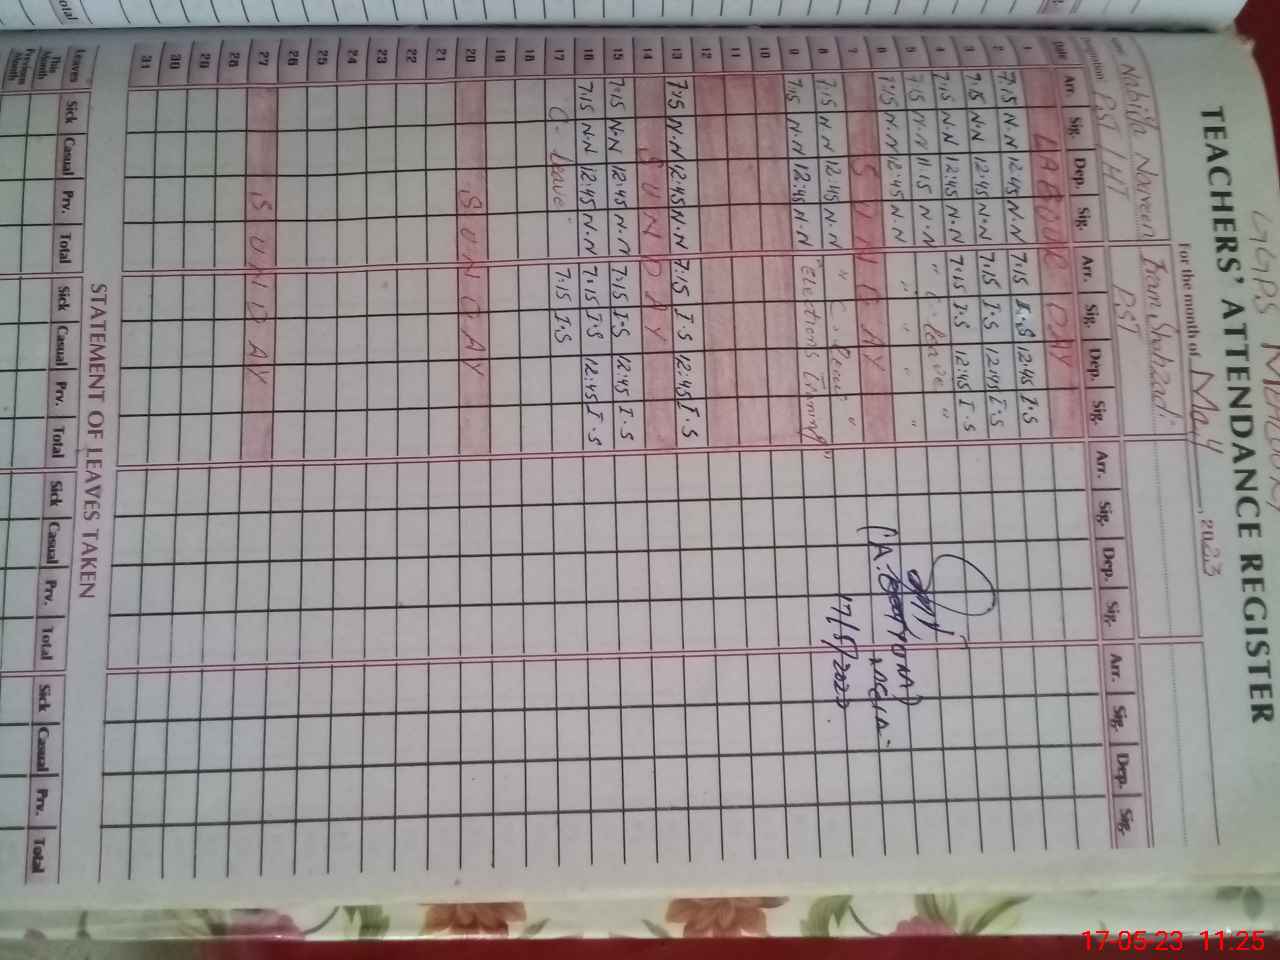 GGPS
TEACHERS' ATTENDANCE REGISTER
For the month of May, 2023
Nabila Noreen
PST / HT
PST
Date Arr. Sig. Dep. Sig. Arr. Sig. Dep. Sig. Arr. Sig. Dep. Sig. Arr. Sig. Dep. Sig.
1 LABOUR DAY
2 7:15 N.N 12:45 N.N 7:15 I.S 12:45 I.S
3 7:15 N.N 12:45 N.N 7:15 I.S 12:45 I.S
4 7:15 N.N 12:45 N.N 7:15 I.S 12:45 I.S
5 7:15 N.N 11:15 N.N " C. leave "
6 7:15 N.N 12:45 N.N " " " "
7 SUNDAY
8 7:15 N.N 12:45 N.N " C. "
9 7:15 N.N 12:45 N.N "Elections
10
11
12
13 7:15 N.N 12:45 N.N 7:15 I.S 12:45 I.S
14 SUNDAY
15 7:15 N.N 12:45 N.N 7:15 I.S 12:45 I.S
16 7:15 N.N 12:45 N.N 7:15 I.S 12:45 I.S
17 C. leave 7:15 I.S
18
19
20 SUNDAY
21
22
23
24
25
26
27 SUNDAY
28
29
30
31
17/5/2023
STATEMENT OF LEAVES TAKEN
Leaves Sick Casual Prv. Total Sick Casual Prv. Total Sick Casual Prv. Total Sick Casual Prv. Total
This Month
Previous Month
17-05-23 11:25